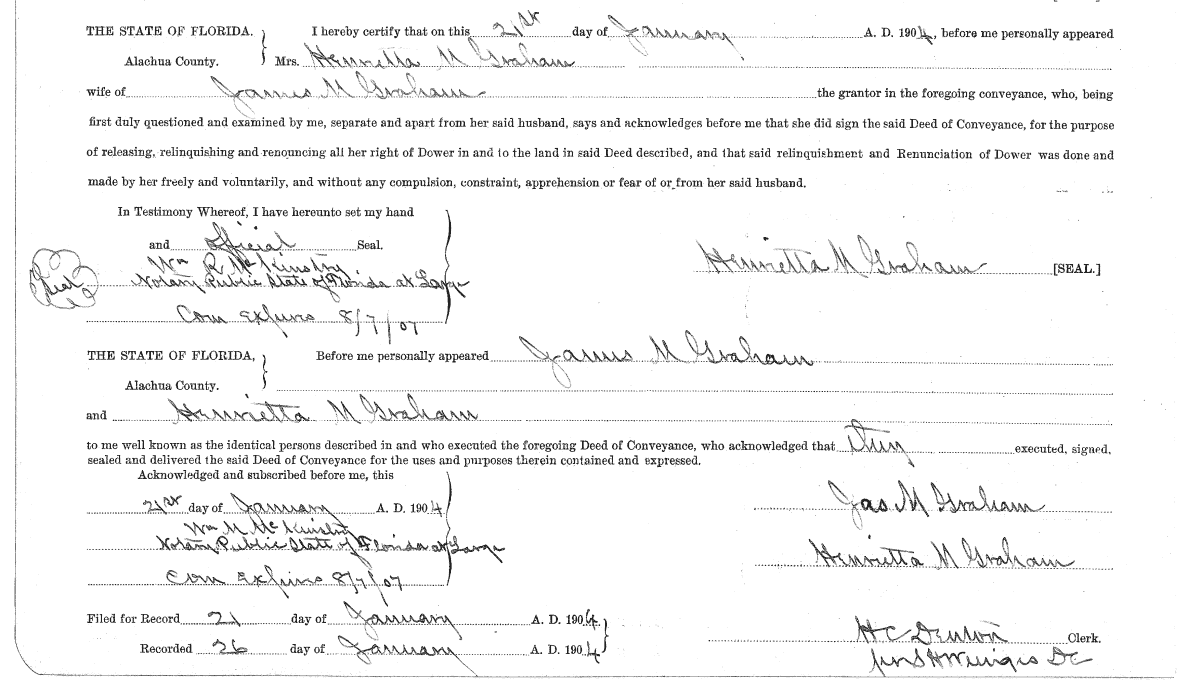 THE STATE OF FLORIDA. I hereby certify that on this 21st day of January A. D. 1904, before me personally appeared
Alachua County. Mrs. Henrietta M Graham
wife of James M Graham the grantor in the foregoing conveyance, who, being
first duly questioned and examined by me, separate and apart from her said husband, says and acknowledges before me that she did sign the said Deed of Conveyance, for the purpose
of releasing, relinquishing and renouncing all her right of Dower in and to the land in said Deed described, and that said relinquishment and Renunciation of Dower was done and
made by her freely and voluntarily, and without any compulsion, constraint, apprehension or fear of or from her said husband.
In Testimony Whereof, I have hereunto set my hand
and official Seal.
Wm R McKinstry
Seal
Notary Public State of Florida at Large
Henrietta M Graham [SEAL.]
Com Expires 8/7/07
THE STATE OF FLORIDA, Before me personally appeared James M Graham
Alachua County.
and Henrietta M Graham
to me well known as the identical persons described in and who executed the foregoing Deed of Conveyance, who acknowledged that they executed, signed,
sealed and delivered the said Deed of Conveyance for the uses and purposes therein contained and expressed.
Acknowledged and subscribed before me, this
21st day of January A. D. 1904
Jas M Graham
Wm M McKinstry
Notary Public State of Florida at Large
Henrietta M Graham
Com Expires 8/7/07
Filed for Record 21 day of January A. D. 1904
H C Denton Clerk.
Recorded 26 day of January A. D. 1904
D C